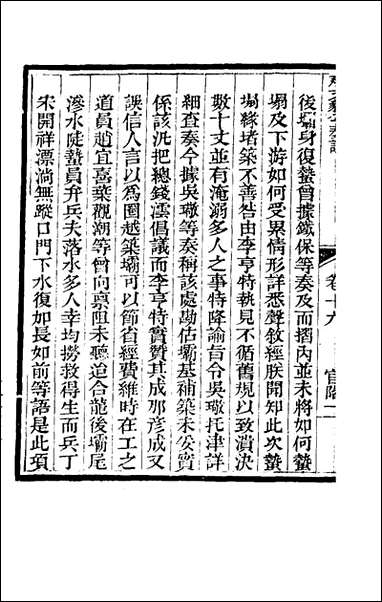 卷十九
官階一
後壩身復蟄曾據鐵保等奏及而摺內並未將如何蟄
塌及下游如何受累情形詳悉聲敘經朕開知此次蟄
塌緣堵築不善咎由李亨特執見不循舊規以致潰決
數十丈並有淹溺多人之事特降諭旨令吳璥托津詳
細查奏今據吳璥等奏稱該處勘估壩基補築未妥實
係該汛把總錢澐倡議而李亨特實贊其成那彥成又
誤信人言以為圈越築壩可以節省經費維時在工之
道員趙宜喜葉觀潮等曾向禀阻未聽迨合龍後壩尾
滲水陡蟄員弁兵夫落水多人幸均撈救得生而兵丁
宋開祥漂淌無蹤口門下水復如長如前等語是此項